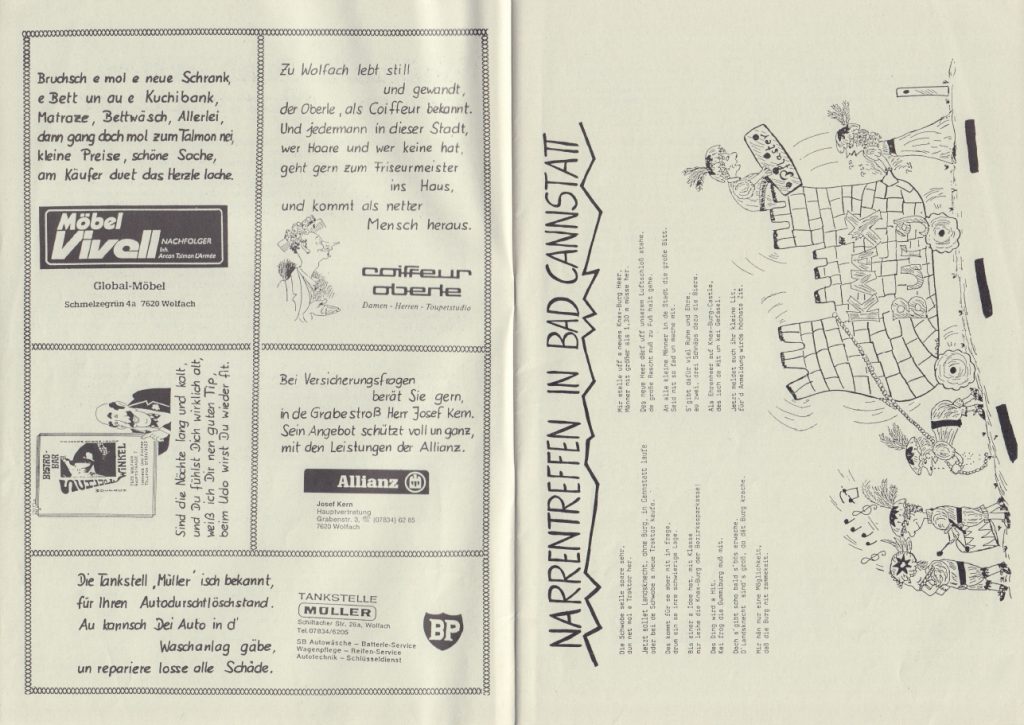 Bruchsch e mol e neue Schrank,
e Bett un au e Kuchibank,
Matraze, Bettwäsch, Allerlei,
dann gang doch mol zum Talmon nei,
kleine Preise, schöne Sache,
am Käufer duet das Herzle lache.
Möbel
Vivell NACHFOLGER
Inh.
Arcan Talmon L'Armée
Global-Möbel
Schmelzegrün 4a 7620 Wolfach
Zu Wolfach lebt still
und gewandt,
der Oberle, als Coiffeur bekannt.
Und jedermann in dieser Stadt,
wer Haare und wer keine hat,
geht gern zum Friseurmeister
ins Haus,
und kommt als netter
Mensch heraus.
coiffeur
oberle
Damen - Herren - Toupetstudio
BISTRO-
BAR
WINKEL
Sind die Nächte lang und kalt,
und Du fühlst Dich wirklich alt,
weiß ich Dir nen guten Tip,
beim Udo wirst Du wieder fit.
Bei Versicherungsfragen
berät Sie gern,
in de Grabestroß Herr Josef Kern.
Sein Angebot schützt voll un ganz,
mit den Leistungen der Allianz.
Allianz
Josef Kern
Hauptvertretung
Grabenstr. 3, ☏ (07834) 62 65
7620 Wolfach
Die Tankstell „Müller" isch bekannt,
für Ihren Autodurschtlöschstand.
Au kannsch Dei Auto in d'
Waschanlag gäbe,
un repariere losse alle Schäde.
TANKSTELLE
MÜLLER
Schiltacher Str. 26a, Wolfach
Tel.07834/6205
SB Autowäsche – Batterie-Service
Wagenpflege – Reifen-Service
Autotechnik – Schlüsseldienst
BP
NARRENTREFFEN IN BAD CANNSTATT
Die Schwobe welle spare sehr,
dun net mol e Traktor her.
Jetzt sollet Landsknecht, ohne Burg, in Cannstatt laufe
oder bei de Schwobe a neue Traktor kaufe.
Des kommt für se aber nit in Frage,
drum ein se inre schwierige Lage.
Bis einer a Idee het, mit Klasse
mir leihe die Knax-Burg der Bezirkssparkasse!
Des Ding wird a Hit.
Kei Frog die Gummiburg muß mit.
Doch s'gibt scho bald s'bös erwache.
D'Landsknecht sind's groß, do dät Burg krache.
Mir hän nur eine Möglichkeit,
daß die Burg nit zammekeit.
Mir stelle uff e neues Knax-Burg Heer.
Männer nit größer als 1,30 m müsse her.
Des neue Heer därf uff unserem Luftschloß stehe,
de große Rescht muß zu Fuß halt gehe.
An alle kleine Männer in de Stadt die große Bitt.
Seid nit so fad un mache mit.
S'gibt dafür viel Ruhm und Ehre.
au zwei, drei Schnäps dezu die Biere.
Als Ehrenheer auf Knax-Burg-Castle,
des isch de Hit un kei Gefasel.
Jetzt meldet euch ihr kleine Lit,
für d'Anmeldung wirds höchste Zit.
KNAX
BURG